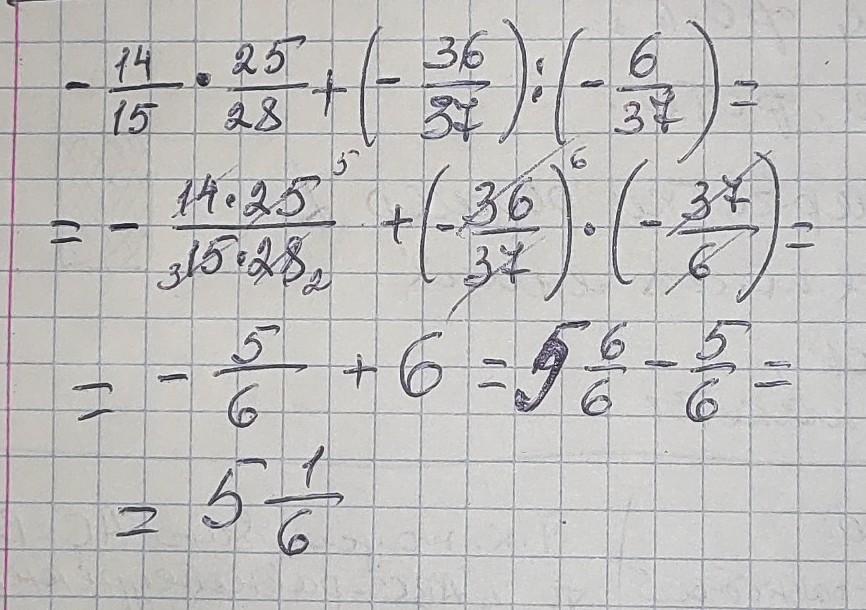 - 14/15 · 25/28 + (- 36/37) : (- 6/37) =
= - 14·25 5/3 15·28 2 + (- 36/37) 6 · (- 37/6) =
= - 5/6 + 6 = 5 6/6 - 5/6 =
= 5 1/6